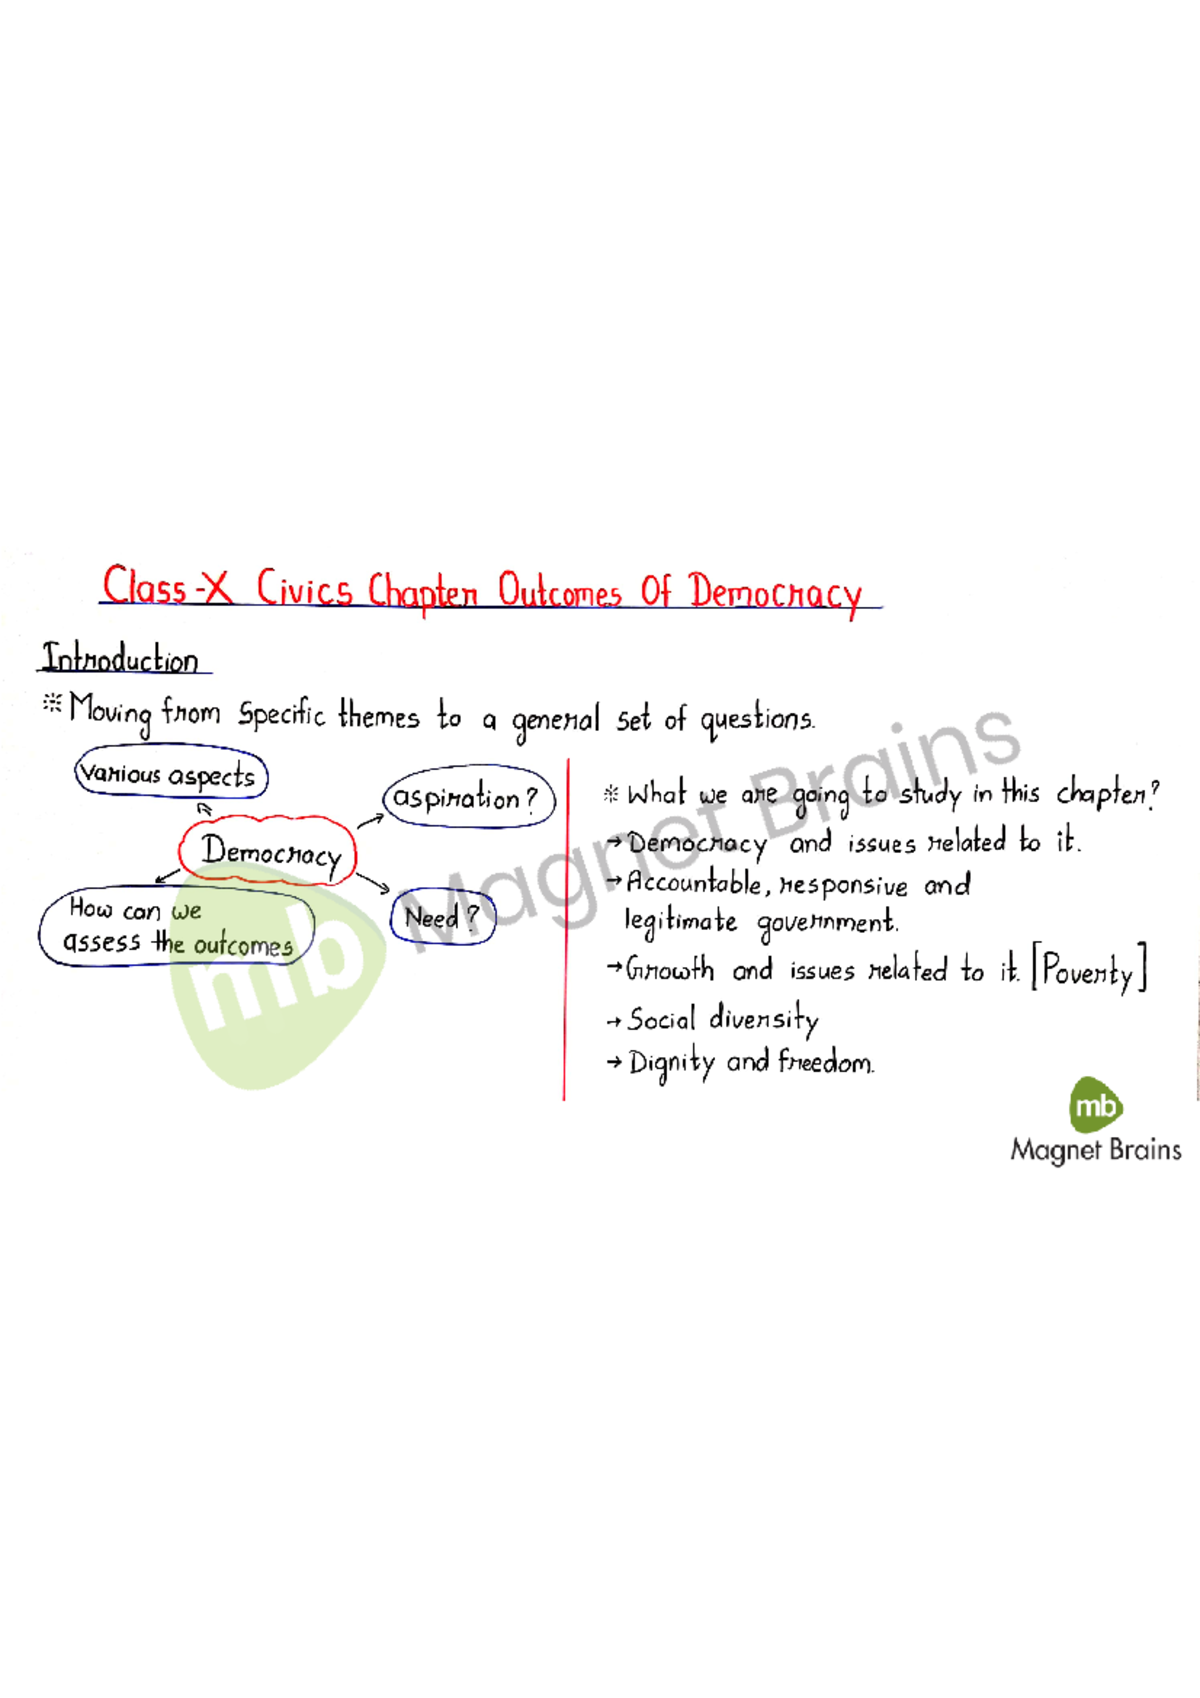 Class-X Civics Chapter Outcomes Of Democracy
Introduction
※ Moving from Specific themes to a general set of questions.
Various aspects
aspiration?
Democracy
How can we
assess the outcomes
Need?
※ What we are going to study in this chapter?
→ Democracy and issues related to it.
→ Accountable, responsive and
legitimate government.
→ Growth and issues related to it. [Poverty]
→ Social diversity
→ Dignity and freedom.
mb Magnet Brains
mb
Magnet Brains